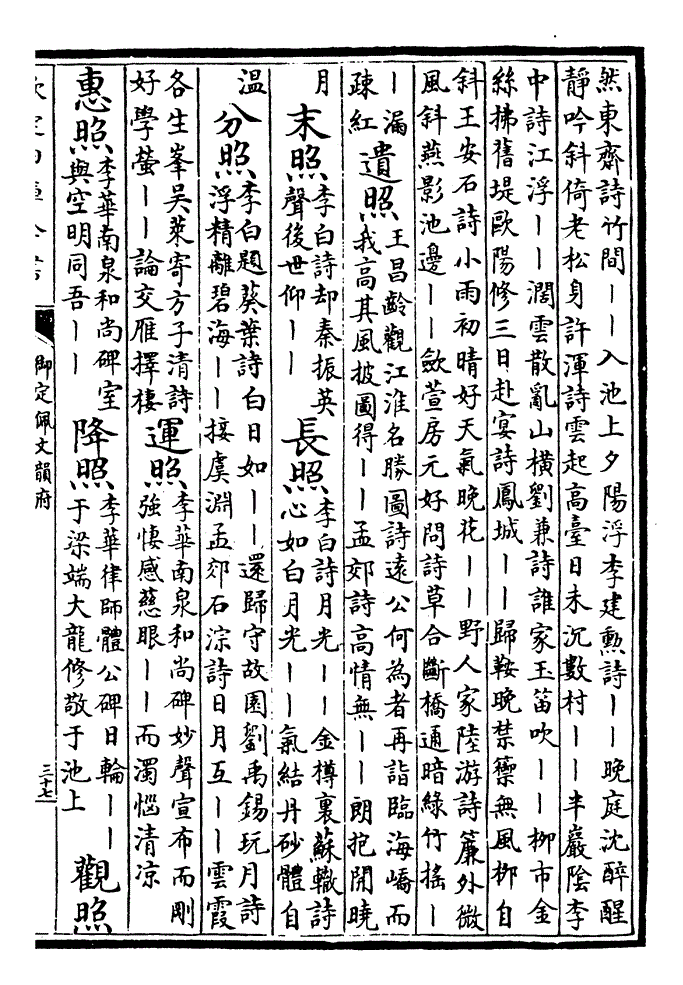 然東齋詩竹間丨丨入池上夕陽浮李建勲詩丨丨晚庭沈醉醒
静吟斜倚老松身許渾詩雲起髙臺日未沉數村丨丨半巖隂李
中詩江浮丨丨濶雲散亂山横劉兼詩誰家玉笛吹丨丨柳市金
絲拂舊堤歐陽修三日赴宴詩鳳城丨丨歸鞍晚禁籞無風柳自
斜王安石詩小雨初晴好天氣晚花丨丨野人家陸游詩簾外微
風斜燕影池邊丨丨斂萱房元好問詩草合斷橋通暗緑竹揺丨
丨漏
疎紅
遺照
王昌齡觀江淮名勝圖詩逺公何為者再詣臨海嶠而
我髙其風披圖得丨丨孟郊詩髙情無丨丨朗抱開曉
月
末照
李白詩却秦振英
聲後世仰丨丨
長照
李白詩月光丨丨金樽裏蘇轍詩
心如白月光丨丨氣結丹砂體自
温
分照
李白題葵葉詩白日如丨丨還歸守故園劉禹錫玩月詩
浮精離碧海丨丨接虞淵孟郊石淙詩日月互丨丨雲霞
各生峯吳萊寄方子清詩
好學螢丨丨論交雁擇棲
運照
李華南泉和尚碑妙聲宣布而剛
強悽感慈眼丨丨而濁惱清凉
惠照
李華南泉和尚碑室
與空明同吾丨丨
降照
李華律師體公碑日輪丨丨
于梁端大龍修敬于池上
觀照
欽定四庫全書
御定佩文韻府
三十七